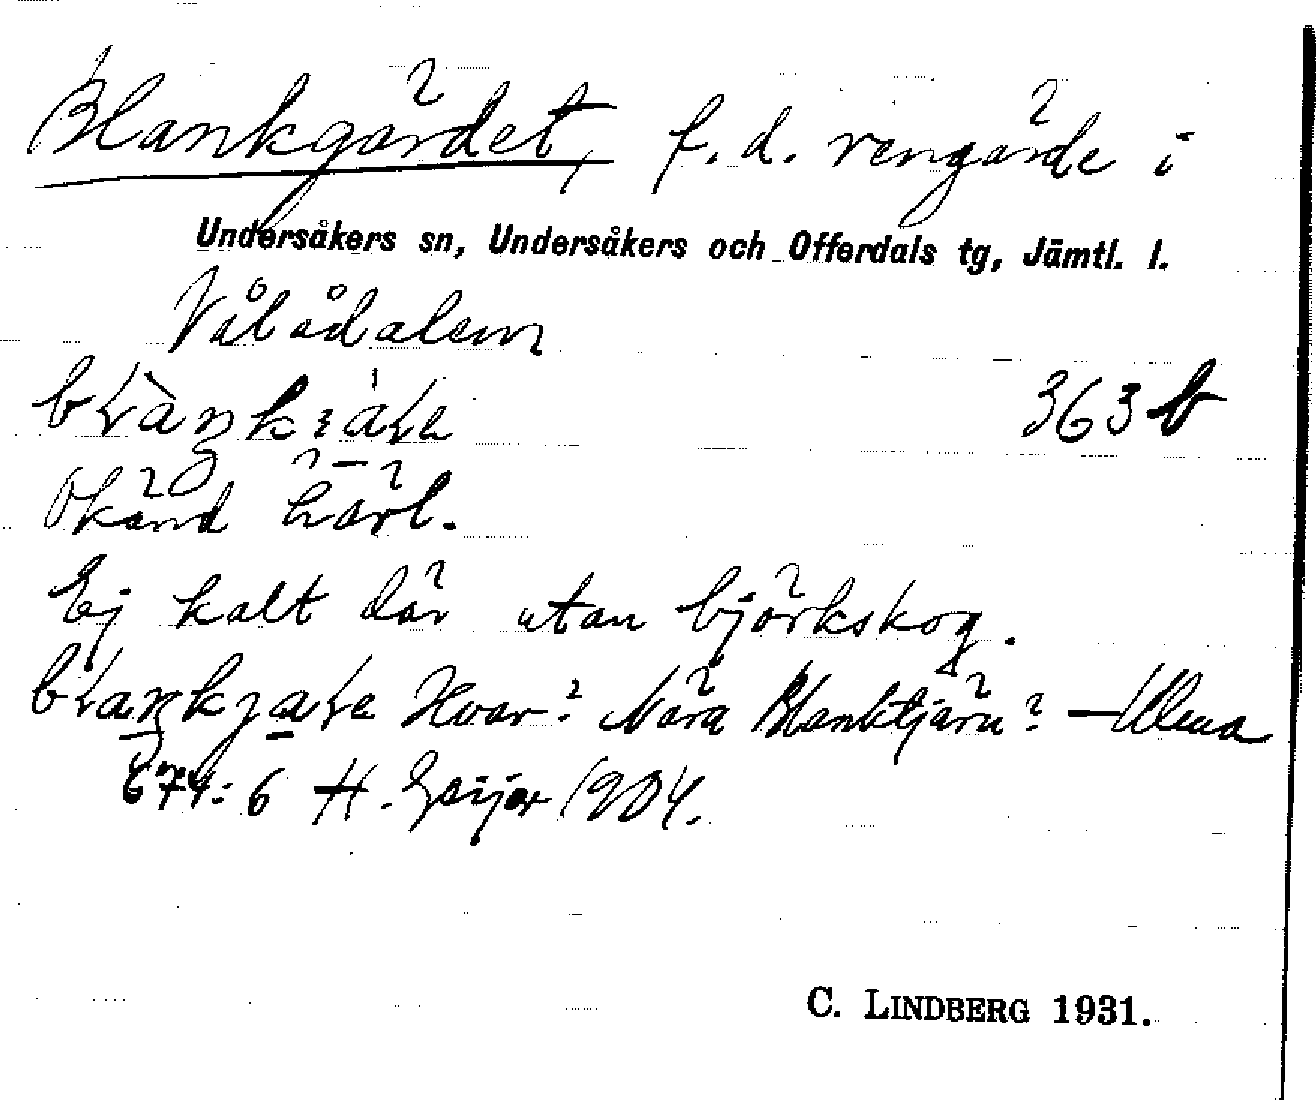 Blankgärdet, f. d. rengärde i
Undersåkers sn, Undersåkers och Offerdals tg, Jämtl. l.
Vålådalen
363 b
Okänd härl.
Ej kalt där utan björkskog.
Hvar? Nära Blanktjärn? — Ulma
674:6 H. Geijer 1904.
C. LINDBERG 1931.